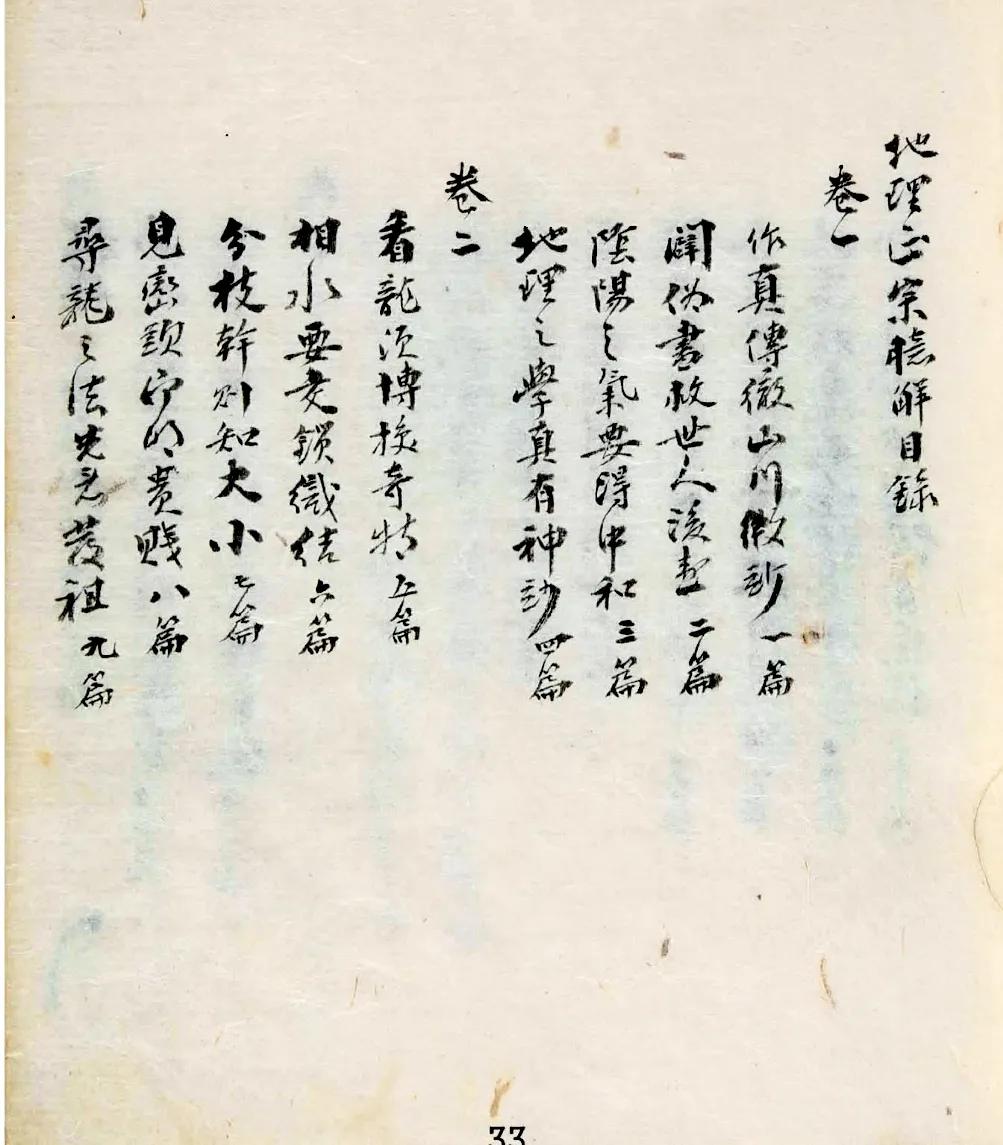 地理正宗臆解目錄
卷一
作真傳徹山川微玅 一篇
闢偽書救世人誤 二篇
陰陽之氣要得中和 三篇
地理之學真有神玅 四篇
卷二
看龍須博換奇特 五篇
相水要交鎖織結 六篇
分枝幹則知大小 七篇
見巒頭即明貴賤 八篇
尋龍之法先看發祖 九篇
33